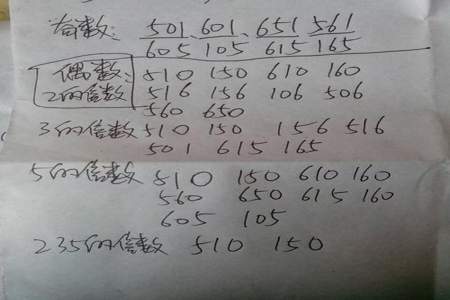 奇数: 501、601、651、561
605 105 615 165
偶数: 510 150 610 160
2的倍数 516 156 106 506
560 650
3的倍数 510 150 156 516
501 615 165
5的倍数 510 150 610 160
560 650 615 160
605 105
235的倍数 510 150